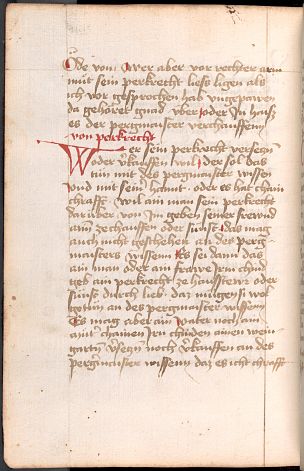 Ode von. Wer aber vor rechter arm
mut sein perkrecht liess ligen als
ich vor gesprochen hab vngepawen
da gehoret gnad vber oder In hauss
es der pergmaister verchauffenn
von perkrecht
Wer sein perkracht versetzn
oder vkauffen wil der sol das
tun mit des pergmaister wissen
vnd mit seiner hannt oder es hat chain
chrafft. Wil ain man sein perkrecht
daruber von Im geben seiner frewnd
ainm zechauffen oder sunst das mag
auch nicht geschehen an des perg
maisters wissenn Es sei dann das
ain man oder ain fraw Irm chind
geb ain perkrecht ze haussteur oder
sunst durch lieb. daz mugen si wol
getun an des pergmaister wissenn
Es mag aber ain vater noch ain
ainer chainen Irn chinden ainen wein
gartn versetzn noch vkauffen an des
pergmaister wissenn daz es icht chrafft